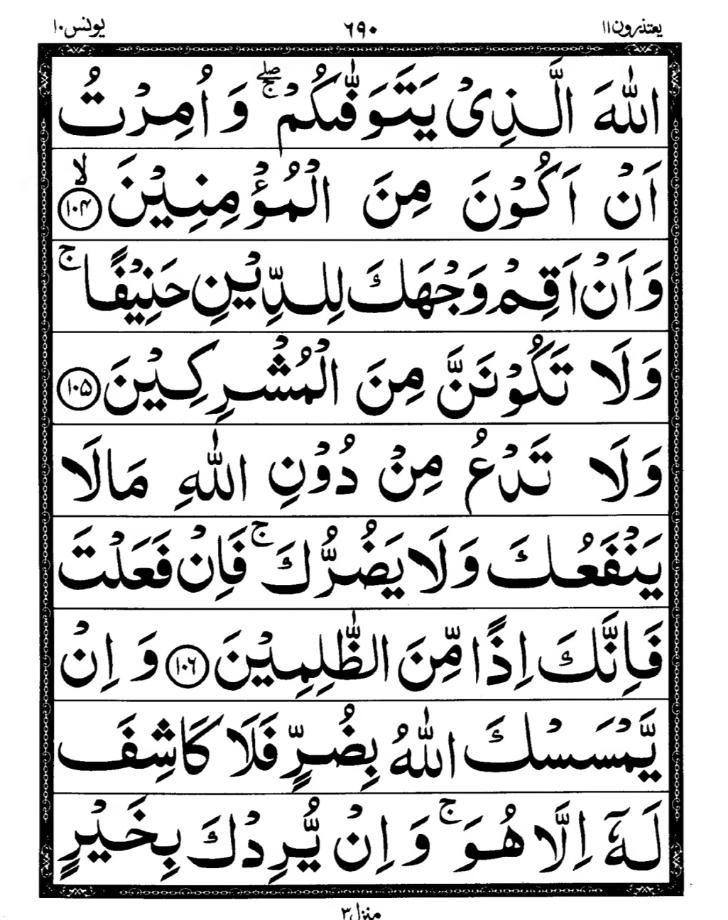 یعتذرون۱۱ ۶۹۰ یونس۱۰
اللّٰهَ الَّذِىْ يَتَوَفّٰٮكُمْ ۖۚ وَ اُمِرْتُ
اَنْ اَكُوْنَ مِنَ الْمُؤْمِنِيْنَ ۙ‏﴿۱۰۴﴾
وَاَنْ اَقِمْ وَجْهَكَ لِلدِّيْنِ حَنِيْفًا ۚ
وَلَا تَكُوْنَنَّ مِنَ الْمُشْرِكِيْنَ ﴿۱۰۵﴾
وَلَا تَدْعُ مِنْ دُوْنِ اللّٰهِ مَالَا
يَنْفَعُكَ وَلَا يَضُرُّكَ ۚ فَاِنْ فَعَلْتَ
فَاِنَّكَ اِذًا مِّنَ الظّٰلِمِيْنَ ﴿۱۰۶﴾ وَ اِنْ
يَّمْسَسْكَ اللّٰهُ بِضُرٍّ فَلَا كَاشِفَ
لَهٗۤ اِلَّا هُوَ ۚ وَ اِنْ يُّرِدْكَ بِخَيْرٍ
منزل۳